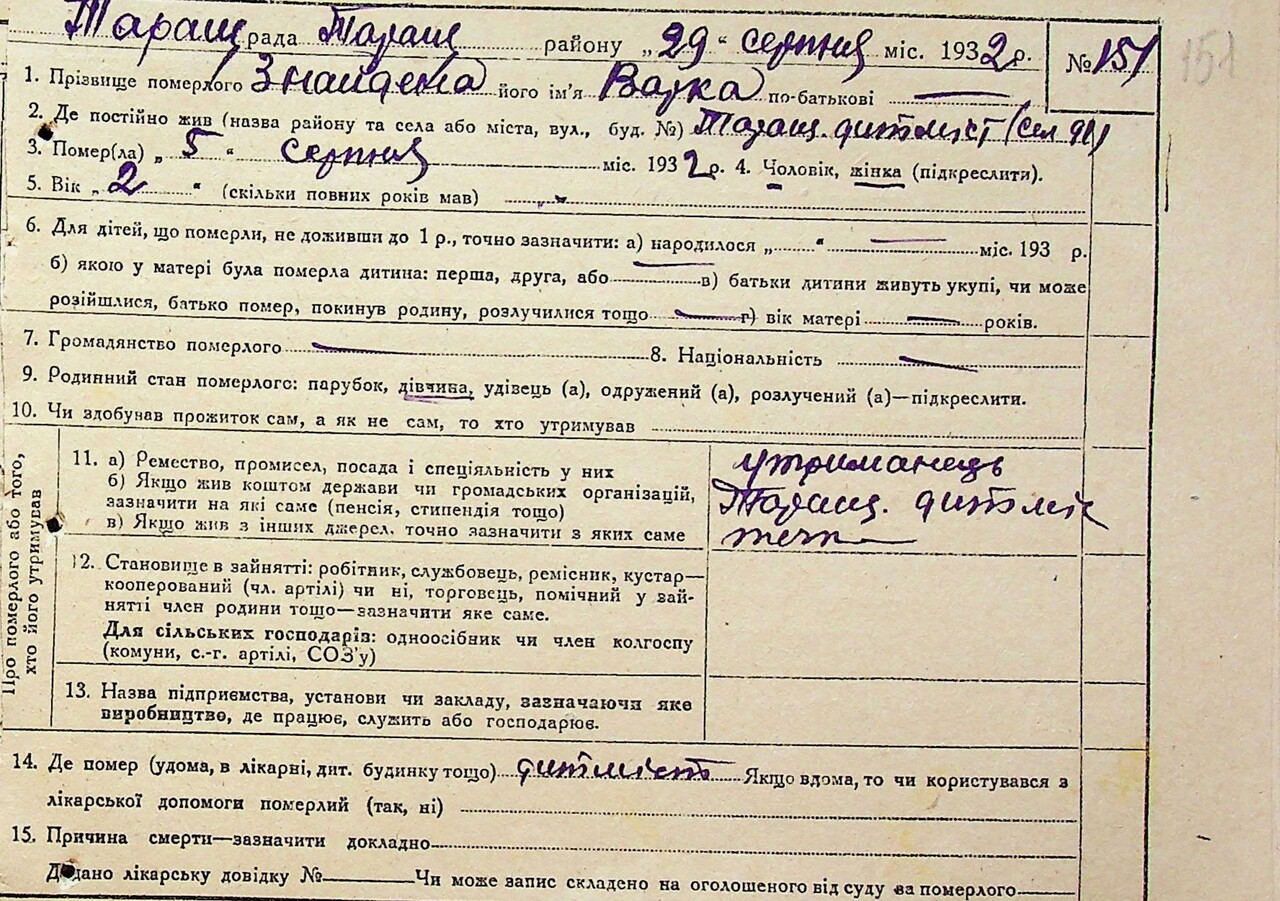 Таращ рада Таращ району „ 29 “ серпня міс. 1932 р. № 151 151
1. Прізвище померлого Знайдена його ім'я Варка по-батькові —
2. Де постійно жив (назва району та села або міста, вул., буд. №) Таращ. дитміст (сел
3. Помер(ла) „ 5 “ серпня міс. 1932 р. 4. Чоловік, жінка (підкреслити).
5. Вік „ 2 “ (скільки повних років мав) „ “
6. Для дітей, що померли, не доживши до 1 р., точно зазначити: а) народилося „ “ — міс. 193 р.
б) якою у матері була померла дитина: перша, друга, або в) батьки дитини живуть укупі, чи може
розійшлися, батько помер, покинув родину, розлучилися тощо — г) вік матері — років.
7. Громадянство померлого — 8. Національність —
9. Родинний стан померлого: парубок, дівчина, удівець (а), одружений (а), розлучений (а)—підкреслити.
10. Чи здобував прожиток сам, а як не сам, то хто утримував
Про померлого або того,
хто його утримував
11. а) Ремество, промисел, посада і спеціяльність у них
б) Якщо жив коштом держави чи громадських організацій,
зазначити на які саме (пенсія, стипендія тощо)
в) Якщо жив з інших джерел, точно зазначити з яких саме
утриманець
Таращ. дитміс
течк—
12. Становище в зайнятті: робітник, службовець, ремісник, кустар—
кооперований (чл. артілі) чи ні, торговець, помічний у зай-
нятті член родини тощо—зазначити яке саме.
Для сільських господарів: одноосібник чи член колгоспу
(комуни, с.-г. артілі, СОЗ'у)
13. Назва підприємства, установи чи закладу, зазначаючи яке
виробництво, де працює, служить або господарює.
14. Де помер (удома, в лікарні, дит. будинку тощо) дитміст Якщо вдома, то чи користувався з
лікарської допомоги померлий (так, ні)
15. Причина смерти—зазначити докладно
Додано лікарську довідку № Чи може запис складено на оголошеного від суду за померлого